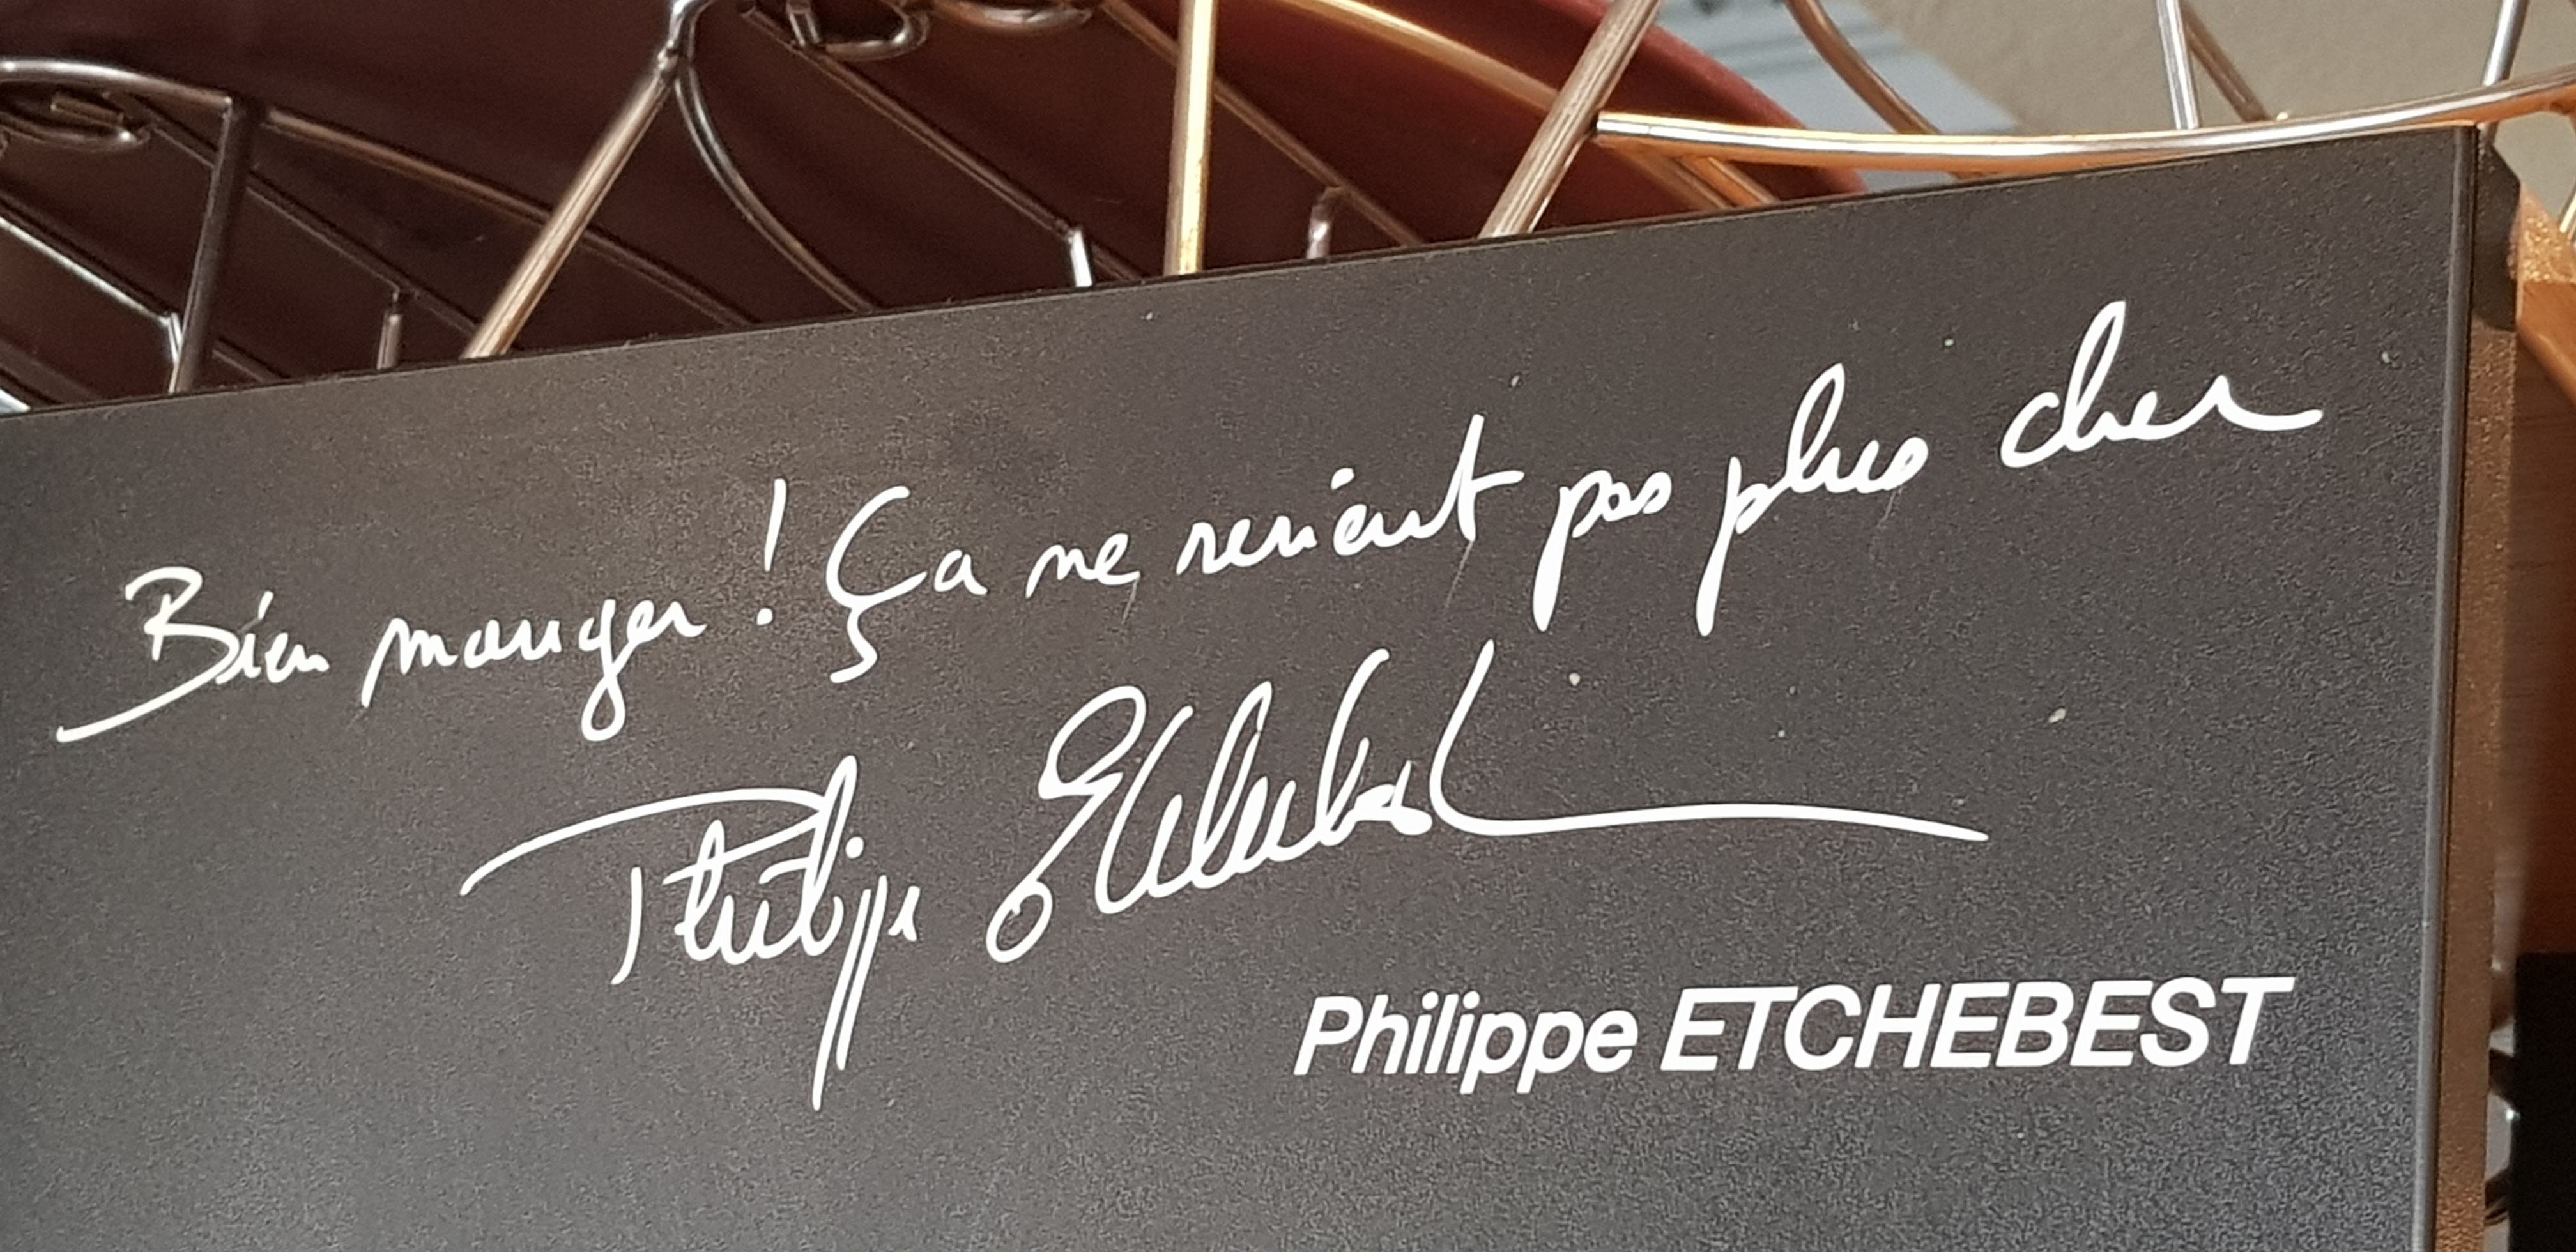 Bien manger ! Ça ne revient pas plus cher
Philippe Etchebest
Philippe ETCHEBEST